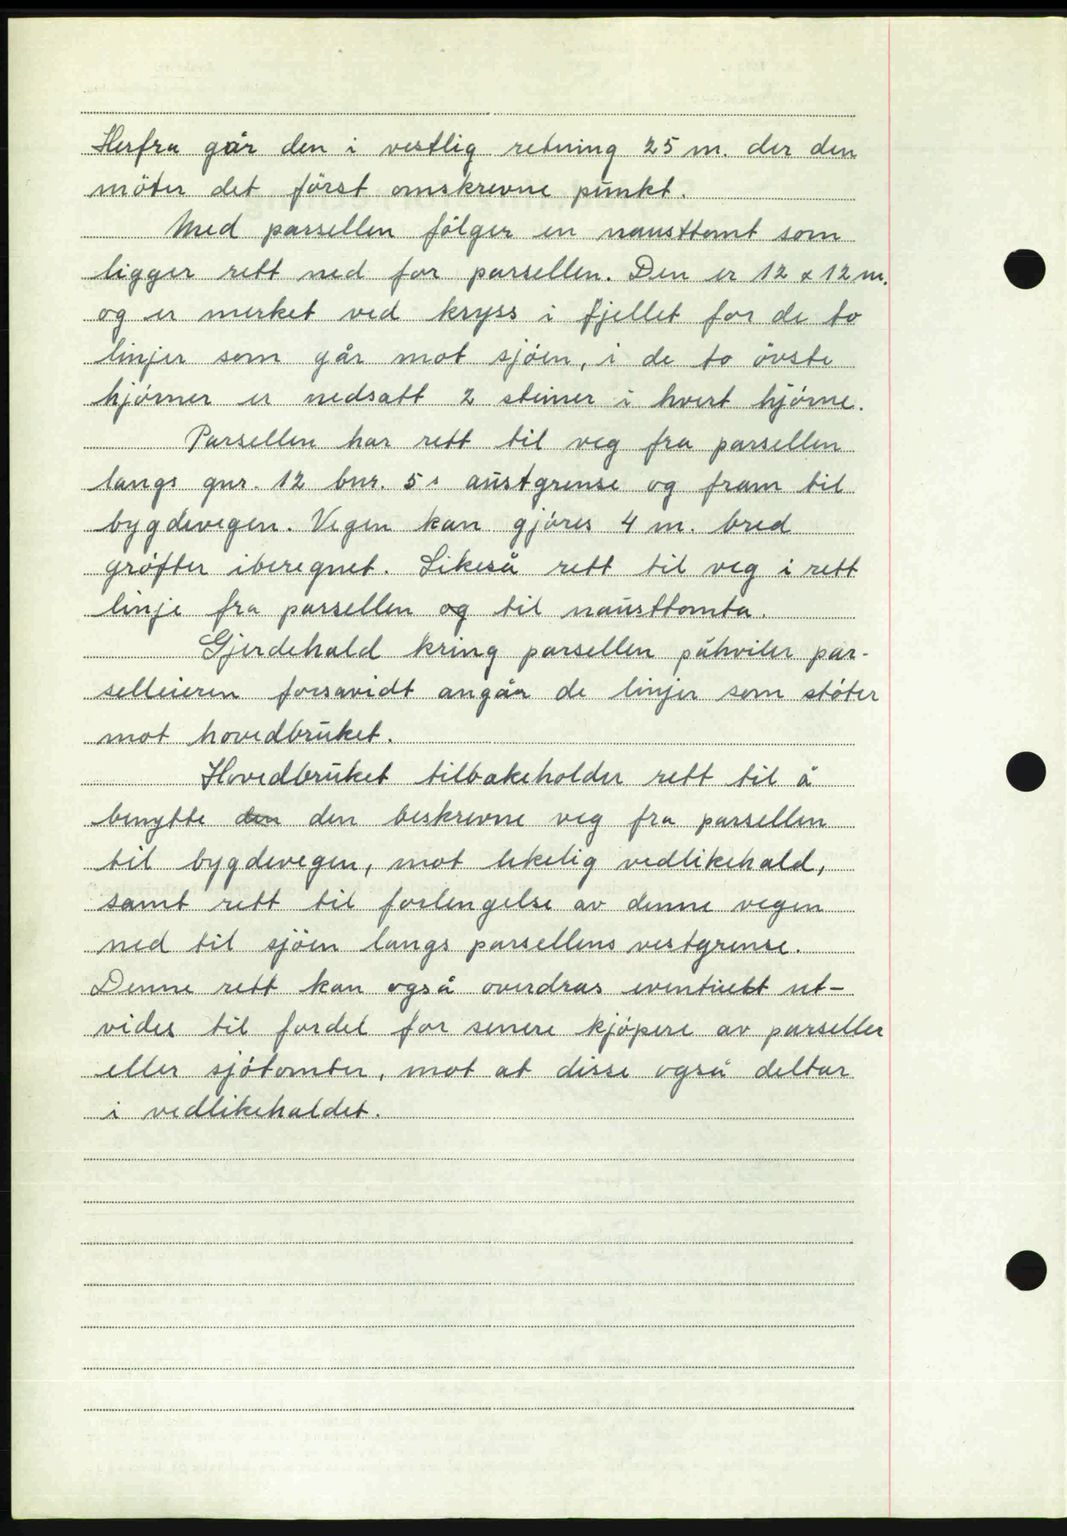 Herfra går den i vestlig retning 25 m. der den
möter det först omskrevne punkt.
Med parsellen fölger en nausttomt som
ligger rett ned for parsellen. Den er 12 x 12 m.
og er merket ved kryss i fjellet for de to
linjer som går mot sjöen, i de to övste
hjörner er nedsatt 2 steiner i hvert hjörne.
Parsellen har rett til veg fra parsellen
langs gnr. 12 bnr. 5s austgrense og fram til
bygdevegen. Vegen kan gjöres 4 m. bred
gröfter iberegnet. Likeså rett til veg i rett
linje fra parsellen og til nausttomta.
Gjerdehald kring parsellen påhviler par-
selleieren forsavidt angår de linjer som stöter
mot hovedbruket.
Hovedbruket tilbakeholder rett til å
benytte den den beskrevne veg fra parsellen
til bygdevegen, mot likelig vedlikehald,
samt rett til forlengelse av denne vegen
ned til sjöen langs parsellens vestgrense.
Denne rett kan også overdras eventuelt ut-
vides til fordel for senere kjöpere av parseller
eller sjötomter, mot at disse også deltar
i vedlikehaldet.